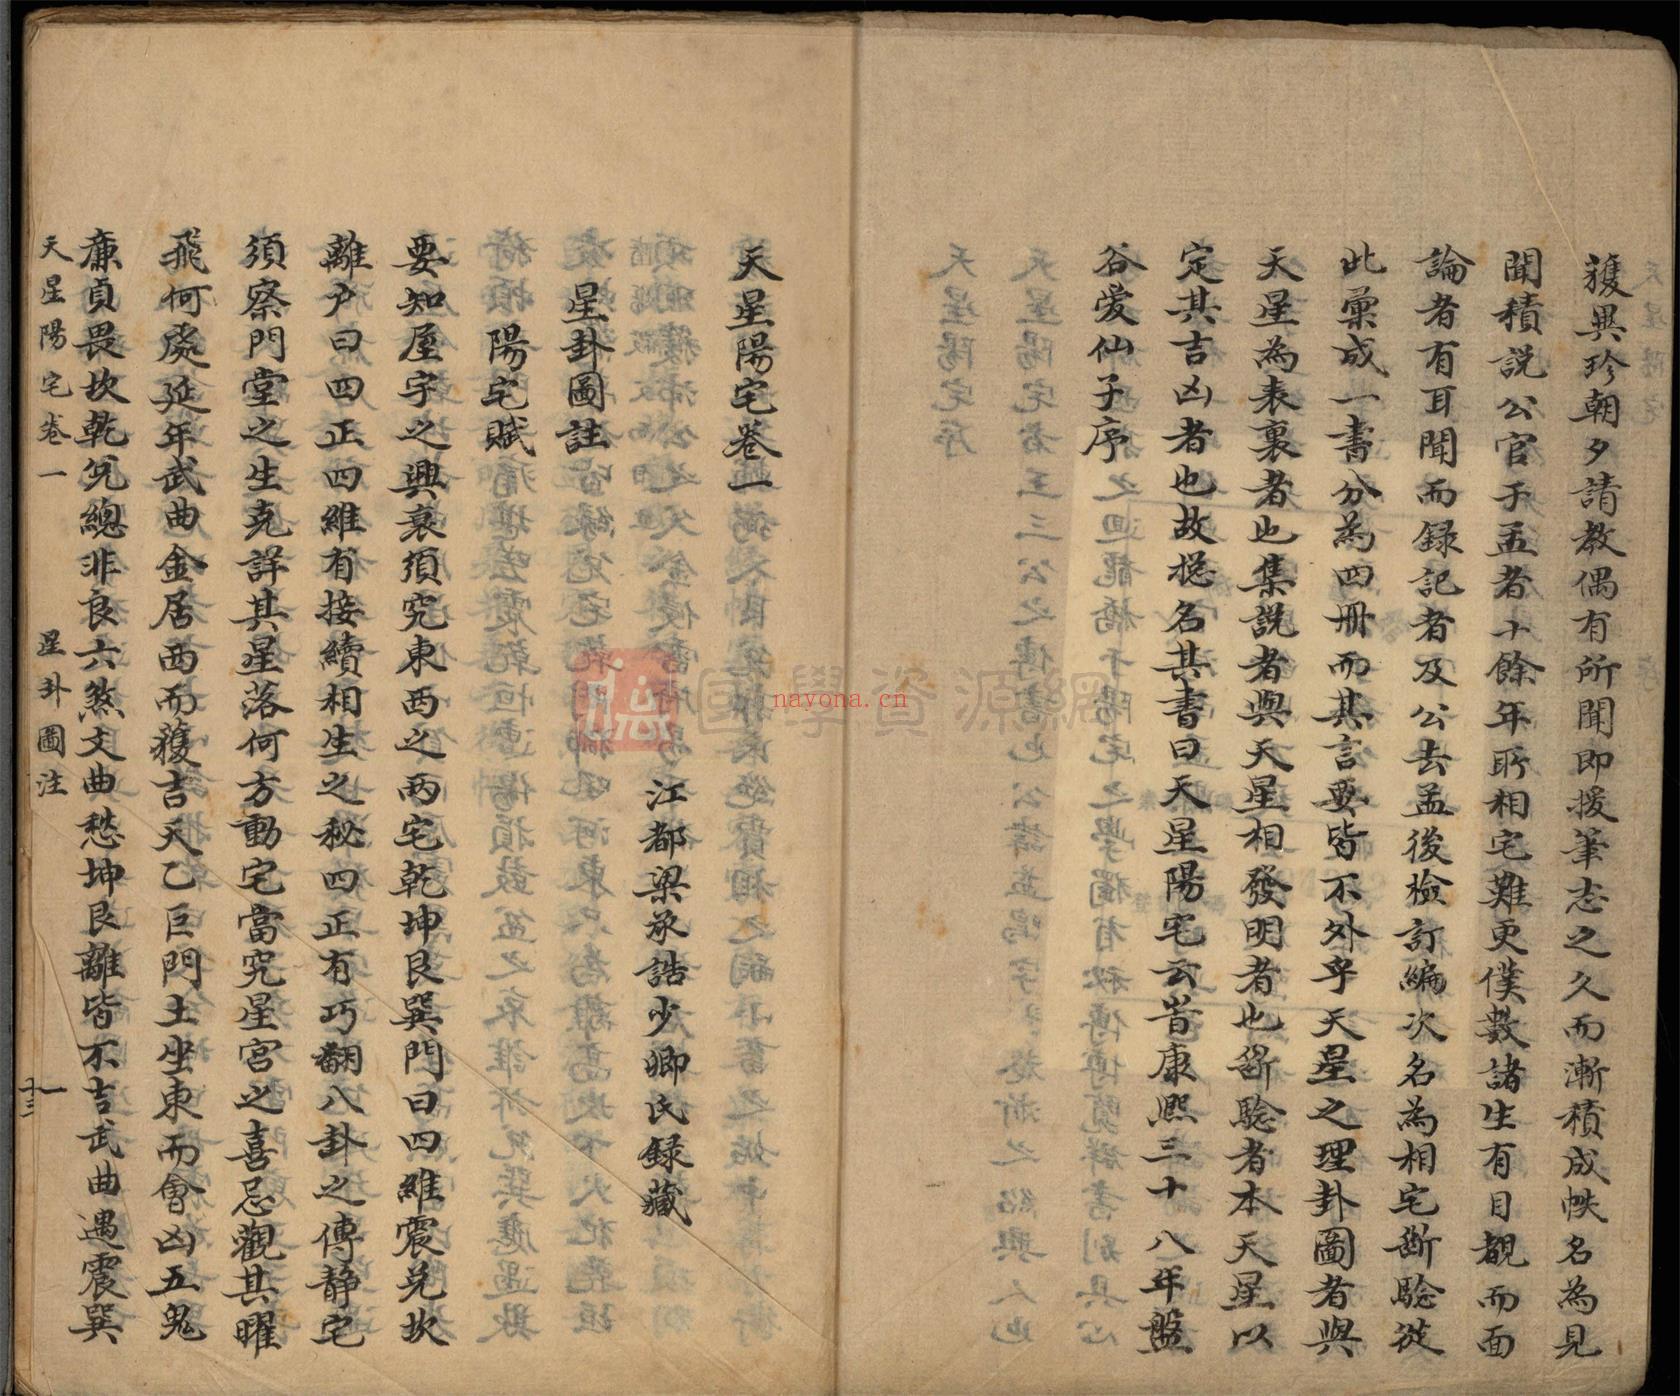 獲異珍朝夕請教偶有所聞即援筆志之久而漸積成帙名為見
聞積說公官于孟者十餘年所相宅難更僕數諸生有目覩而面
論者有耳聞而録記者及公去孟後檢訂編次名為相宅斷騐從
此彙成一書分為四冊而其言要皆不外乎天星之理卦圖者與
天星為表裏者也集説者與天星相發明者也斷騐者本天星以
定其吉凶者也故揔名其書曰天星陽宅云旹康熙三十八年盤
谷愛仙子序
天星陽宅卷一
江都梁承誥少卿氏録藏
星卦圖註
陽宅賦
要知屋宇之興衰須究東西之兩宅乾坤艮巽門曰四維震兌坎
離户曰四正四維有接續相生之秘四正有巧翻八卦之傳静宅
須察門堂之生克詳其星落何方動宅當究星宮之喜忌觀其曜
飛何處延年武曲金居西而獲吉天乙巨門土坐東而會凶五鬼
廉貞畏坎乾兌總非良六煞文曲愁坤艮離皆不吉武曲遇震巽
天星陽宅卷一
星卦圖注
國學資源網
nayona.cn